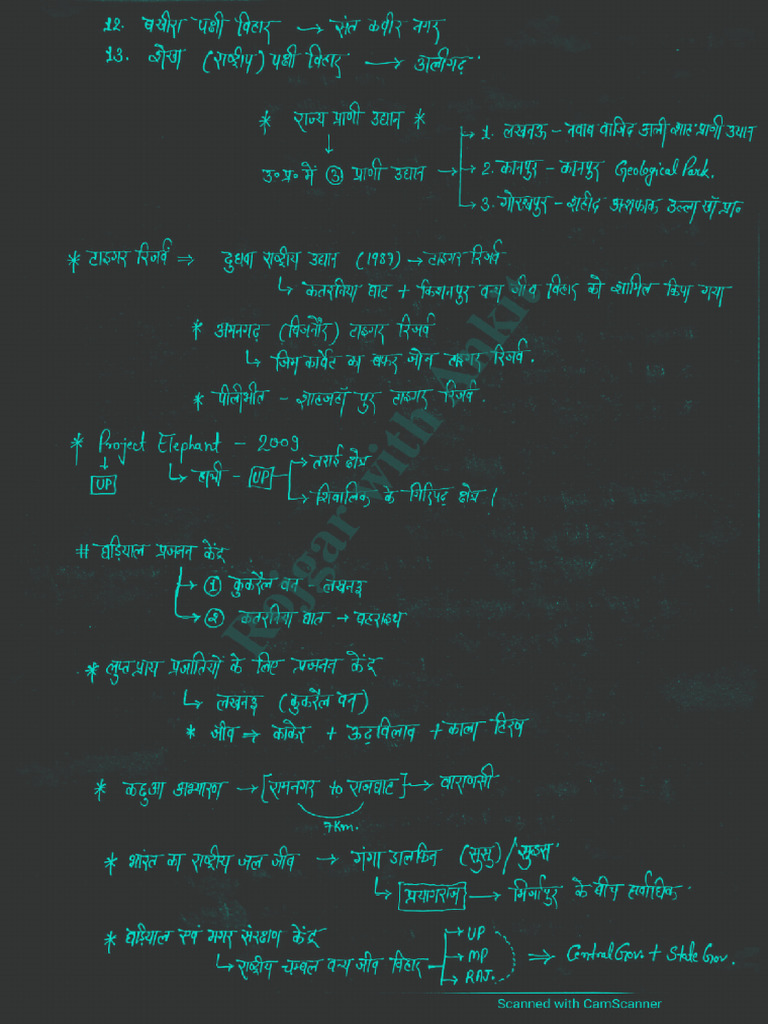 12. बखीरा पक्षी विहार → संत कबीर नगर
13. शेखा (राष्ट्रीय) पक्षी विहार → अलीगढ़
* राज्य प्राणी उद्यान *
↓
उ०प्र० में ③ प्राणी उद्यान →
→ 1. लखनऊ - नवाब वाजिद अली शाह प्राणी उद्यान
→ 2. कानपुर - कानपुर Geological Park.
→ 3. गोरखपुर - शहीद अशफाक उल्ला खाँ प्रा०
* टाइगर रिजर्व ⇒ दुधवा राष्ट्रीय उद्यान (1987) → टाइगर रिजर्व
↳ कतरनिया घाट + किशनपुर वन्य जीव विहार को शामिल किया गया
* अमनगढ़ (बिजनौर) टाइगर रिजर्व
↳ जिम कार्बेट का बफर जोन टाइगर रिजर्व.
* पीलीभीत - शाहजहाँ पुर टाइगर रिजर्व.
* Project Elephant - 2009
↓
UP
↳ हाथी - UP
→ तराई क्षेत्र
→ शिवालिक के गिरिपद क्षेत्र।
# घड़ियाल प्रजनन केंद्र
→ ① कुकरैल वन - लखनऊ
→ ② कतरनिया घाट → बहराइच
* लुप्तप्राय प्रजातियों के लिए प्रजनन केंद्र
↳ लखनऊ (कुकरैल वन)
* जीव ⇒ काकेर + ऊदविलाव + काला हिरण
* कछुआ अभ्यारण → [रामनगर to राजघाट] → वाराणसी
7km.
* भारत का राष्ट्रीय जल जीव → गंगा डालफिन (सुसु) /
↳ प्रयागराज → मिर्जापुर के बीच सर्वाधिक
* घड़ियाल एवं मगर संरक्षण केंद्र
↳ राष्ट्रीय चम्बल वन्य जीव विहार
→ UP
→ MP
→ RAJ.
⇒ Central Gov. + State Gov.
Rojgar with Ankit
Scanned with CamScanner